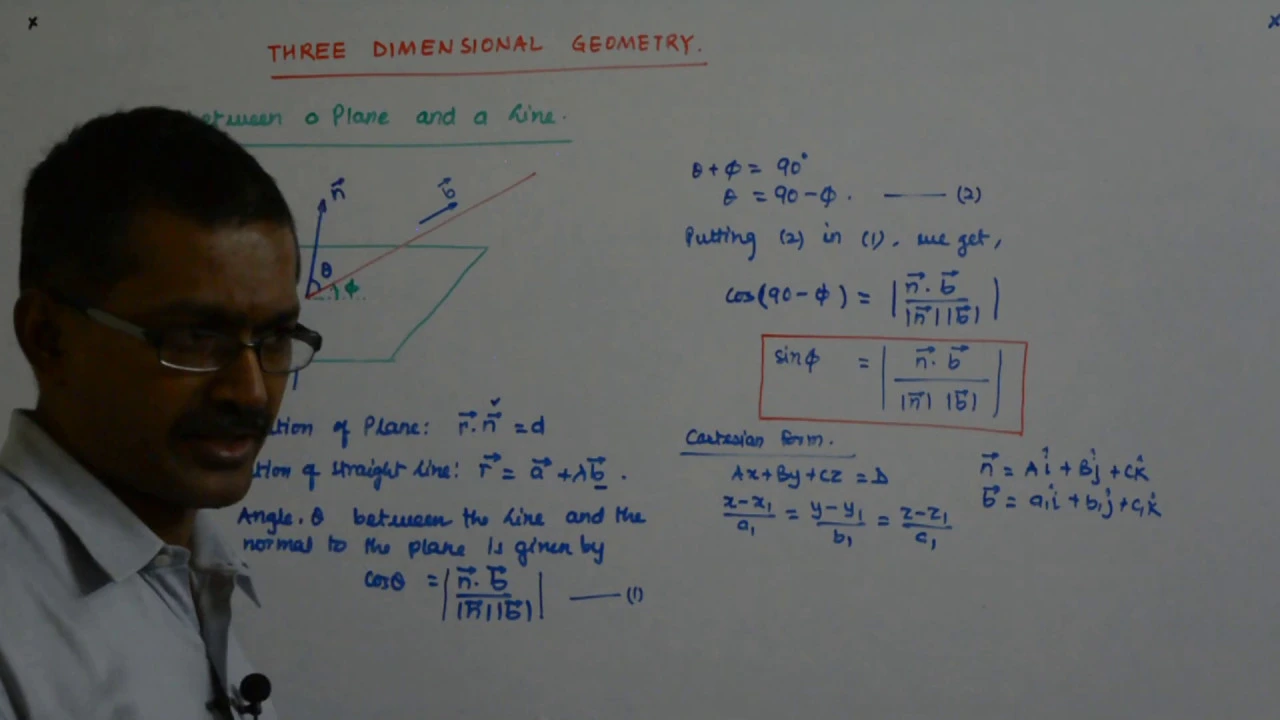 THREE DIMENSIONAL GEOMETRY.
between a Plane and a Line.
n⃗
b⃗
θ
φ
of Plane: r⃗.n⃗ = d
of straight Line: r⃗ = a⃗ + λb⃗.
Angle. θ between the Line and the
normal to the plane is given by
cosθ = |n⃗.b⃗ / |n⃗||b⃗|| —— (1)
θ+φ = 90°
θ = 90-φ. —— (2)
Putting (2) in (1), we get,
cos(90-φ) = |n⃗.b⃗ / |n⃗||b⃗||
sinφ = |n⃗.b⃗ / |n⃗||b⃗||
Cartesian Form.
Ax+By+Cz = D
x-x₁/a₁ = y-y₁/b₁ = z-z₁/c₁
n⃗ = Aî + Bĵ + Ck̂
b⃗ = a₁î + b₁ĵ + c₁k̂